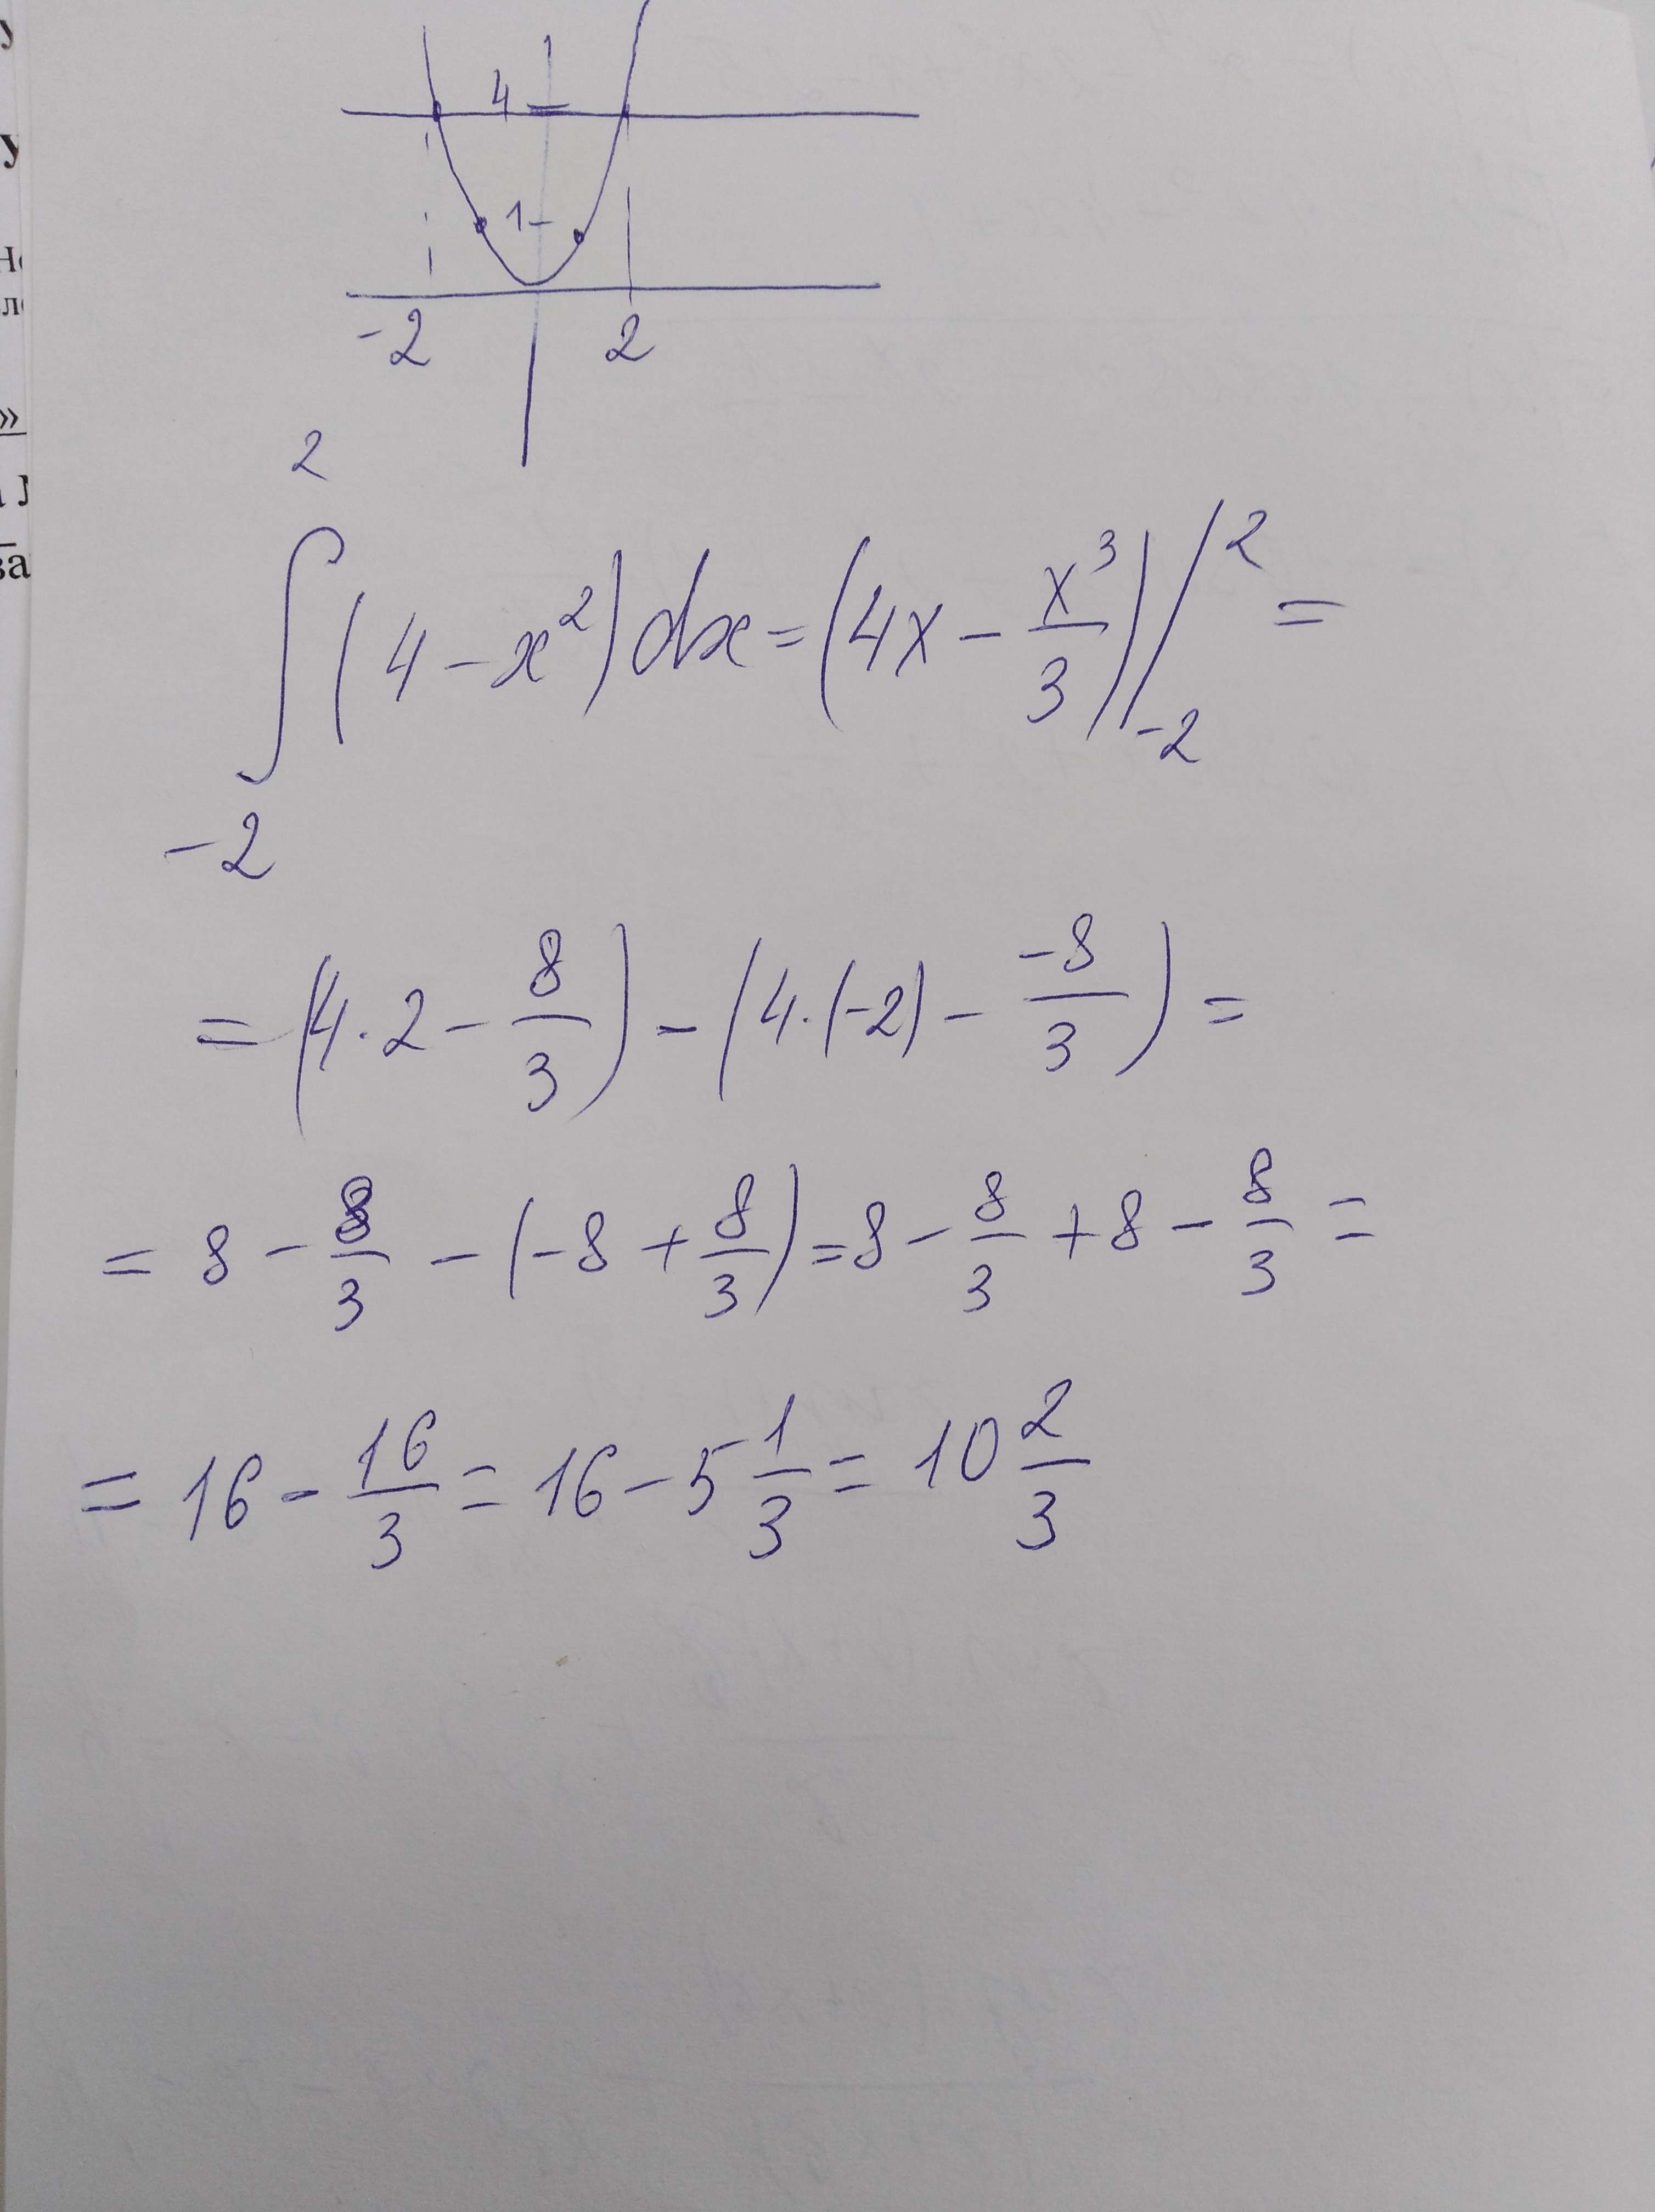 4
1
-2 2
∫₋₂² (4 - x²)dx = (4x - x³/3)|₋₂² =
= (4·2 - 8/3) - (4·(-2) - -8/3) =
= 8 - 8/3 - (-8 + 8/3) = 8 - 8/3 + 8 - 8/3 =
= 16 - 16/3 = 16 - 5 1/3 = 10 2/3